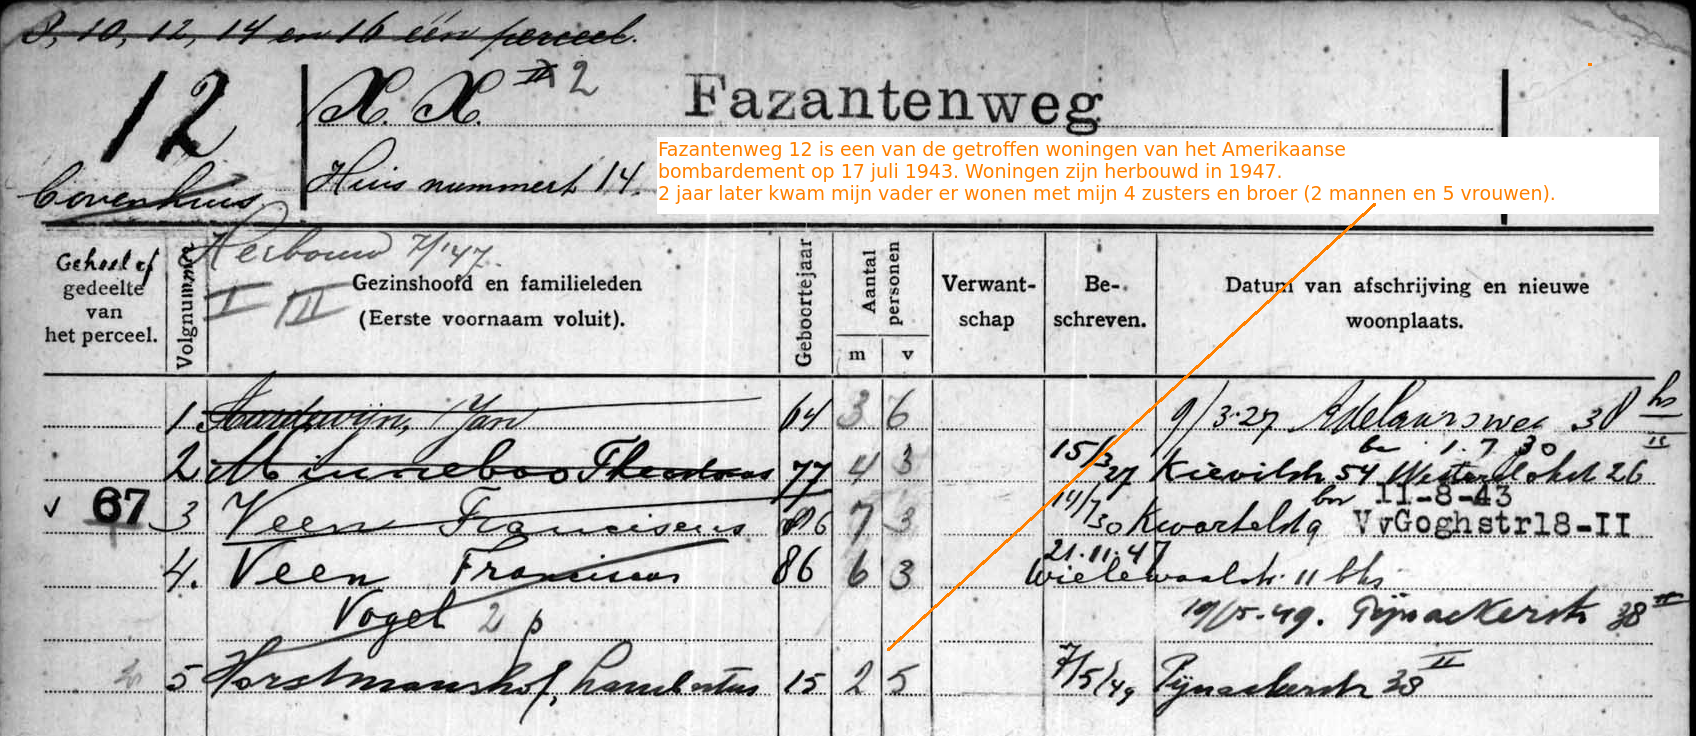 8, 10, 12, 14 en 16 één perceel.
12 X X. 2 Fazantenweg
Fazantenweg 12 is een van de getroffen woningen van het Amerikaanse
bombardement op 17 juli 1943. Woningen zijn herbouwd in 1947.
2 jaar later kwam mijn vader er wonen met mijn 4 zusters en broer (2 mannen en 5 vrouwen).
Bovenhuis Huis nummert 14.
Herbouw 7/'47.
I II
Geheel of gedeelte van het perceel.
Volgnummer
Gezinshoofd en familieleden
(Eerste voornaam voluit).
Geboortejaar
Aantal personen
m v
Verwant-
schap
Be-
schreven.
Datum van afschrijving en nieuwe
woonplaats.
1 Hardewijn, Jan 64 3 6 9/3-27 Adelaarsweg 38 hs
2 Minneboo Theodoor 77 4 3 15/3 27 Kievitstr 54 be 1.7 30 26
v 67 3 Veen Franciscus 86 7 3 14/7 30 Kwartelstr 9 bov 11-8-43
VvGoghstr18-II
4. Veen Franciscus 86 6 3 21.11.47 Wielewaalstr. 11 bhs
Vogel 2 p 10/5-49. Pijnackerstr 38 II
5 Horstmanshof, Lambertus 15 2 5 7/5/49 Pijnackerstr 38 II